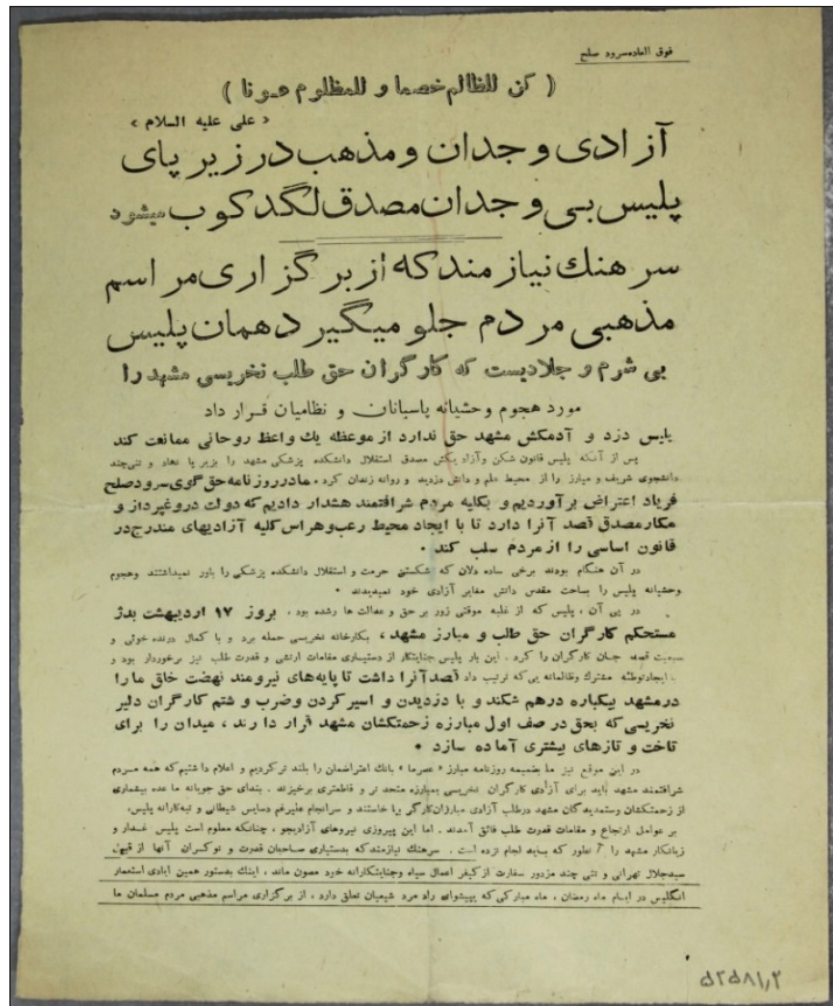 فوق العاده سرود صلح
( کن للظالم خصما و للمظلوم عونا )
« علی علیه السلام »
آزادی وجدان و مذهب در زیر پای
پلیس بی وجدان مصدق لگد کوب میشود
سرهنك نیازمند که از برگزاری مراسم
مذهبی مردم جلو میگیرد همان پلیس
بی شرم و جلادیست که کارگران حق طلب نخریسی مشهد را
مورد هجوم وحشیانه پاسبانان و نظامیان قرار داد
پلیس دزد و آدمکش مشهد حق ندارد از موعظه یك واعظ روحانی ممانعت کند
پس از آنکه پلیس قانون شکن و آزادیکش مصدق استقلال دانشکده پزشکی مشهد را بزیر پا نهاد و تنی چند
دانشجوی شریف و مبارز را از محیط علم و دانش دزدید و روانه زندان کرد . ما در روزنامه حق گوی سرود صلح
فریاد اعتراض برآوردیم و بکلیه مردم شرافتمند هشدار دادیم که دولت دروغپرداز و
مکار مصدق قصد آنرا دارد تا با ایجاد محیط رعب و هراس کلیه آزادیهای مندرج در
قانون اساسی را از مردم سلب کند .
در آن هنگام بودند برخی ساده دلان که شکستن حرمت و استقلال دانشکده پزشکی را باور نمیداشتند و هجوم
وحشیانه پلیس را بساحت مقدس دانش مغایر آزادی خود نمیدیدند .
در پی آن ، پلیس که از غلبه موقتی زور بر حق و عدالت ها رشده بود ، بروز ۱۷ اردیبهشت بدژ
مستحکم کارگران حق طلب و مبارز مشهد ، بکارخانه نخریسی حمله برد و با کمال درنده خوئی و
سبعیت قصد جان کارگران را کرد . این بار پلیس جنایتکار از دستیاری مقامات ارتشی و قدرت طلب نیز برخوردار بود و
با ایجاد توطئه مشترك و ظالمانه یی که ترتیب داد قصد آنرا داشت تا پایه‌های نیرومند نهضت خلق ما را
در مشهد بیکباره درهم شکند و با دزدیدن و اسیر کردن و ضرب و شتم کارگران دلیر
نخریسی که بحق در صف اول مبارزه زحمتکشان مشهد قرار دارند ، میدان را برای
تاخت و تازهای بیشتری آماده سازد .
در این موقع نیز ما بضمیمه روزنامه مبارز « عصر ما » بانك اعتراضمان را بلند تر کردیم و اعلام داشتیم که همه مردم
شرافتمند مشهد باید برای آزادی کارگران نخریسی بمبارزه متحد تر و قاطعتری برخیزند . بندای حق جویانه ما عده بیشماری
از زحمتکشان و ستمدیدگان مشهد در طلب آزادی مبارزان کارگر بپا خاستند و سرانجام علیرغم دسایس شیطانی و تبهکارانه پلیس،
بر عوامل ارتجاع و مقامات قدرت طلب فائق آمدند . اما این پیروزی نیروهای آزادیجو ، چنانکه معلوم است پلیس غدار و
زیانکار مشهد را آنطور که باید لجام نزده است . سرهنك نیازمند که بدستیاری صاحبان قدرت و نوکران آنها از قبیل
سیدجلال تهرانی و تنی چند مزدور سفارت از کیفر اعمال سیاه و جنایتکارانه خود مصون ماند ، اینك بدستور همین ایادی استعمار
انگلیس در ایام ماه رمضان ، ماه مبارکی که بپیشوای راد مرد شیعیان تعلق دارد ، از برگزاری مراسم مذهبی مردم مسلمان ما
۵۲۵۸۱٫۲